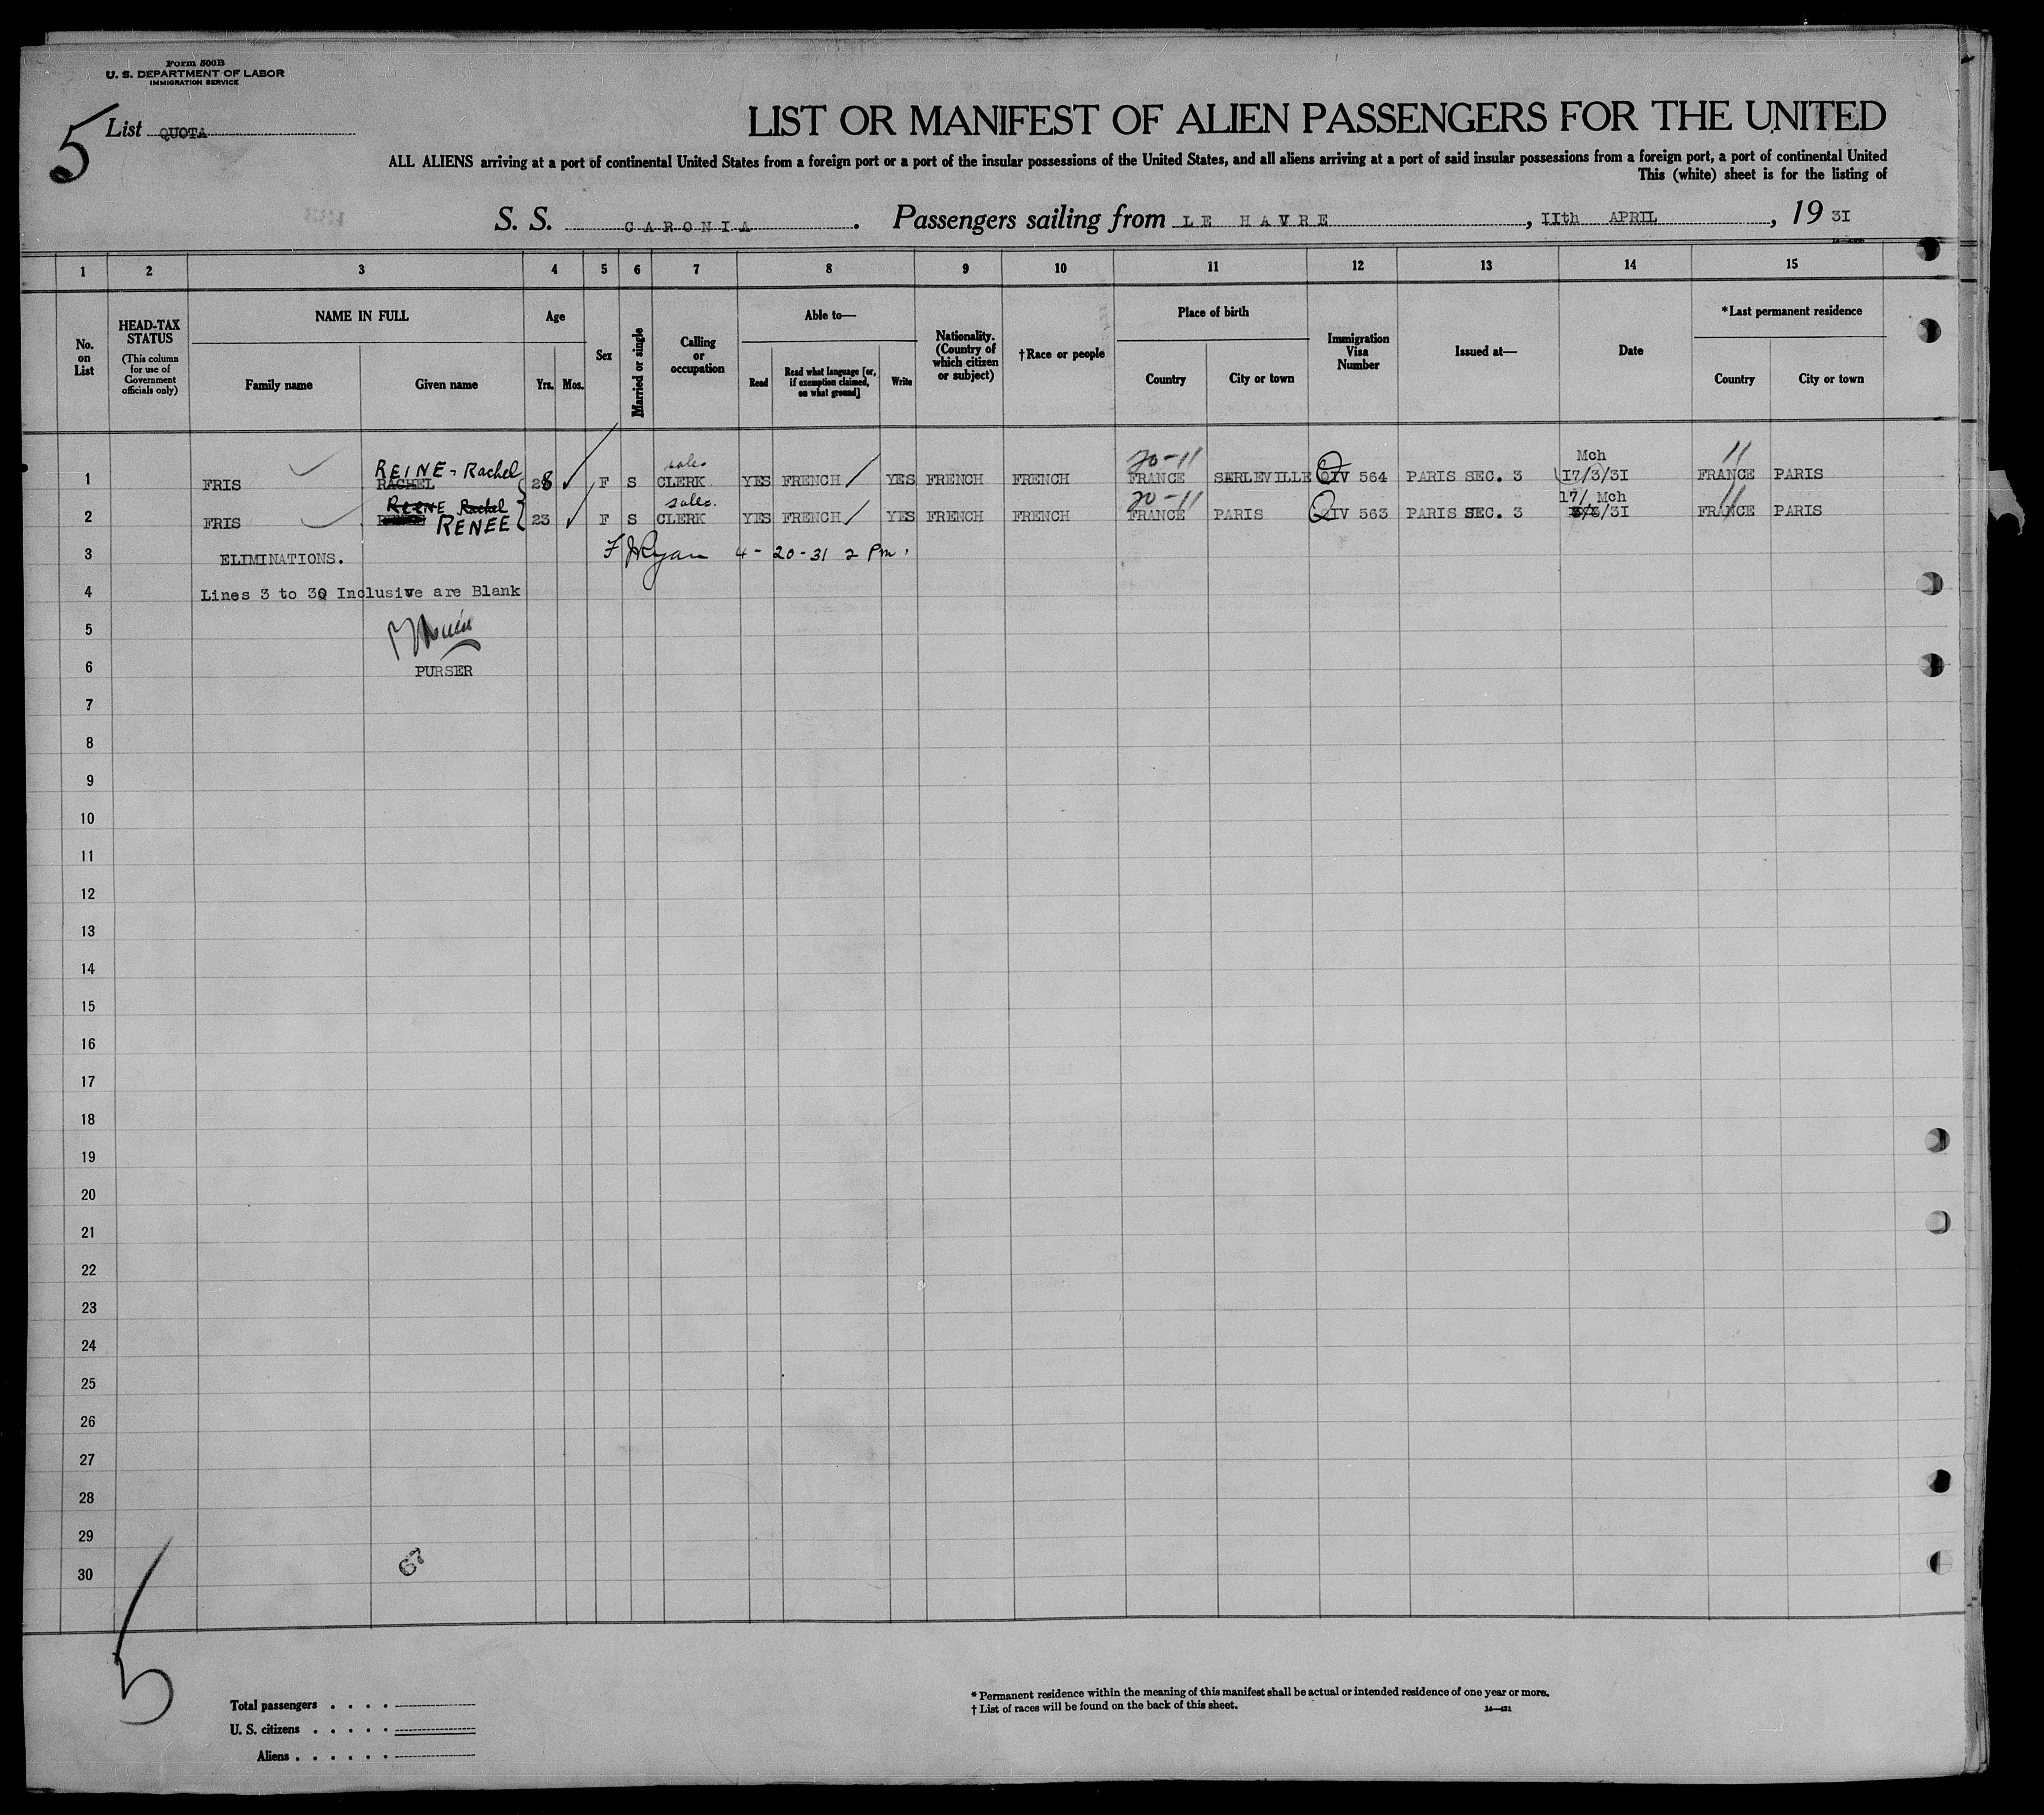 Form 500B
U. S. DEPARTMENT OF LABOR
IMMIGRATION SERVICE
5
List QUOTA
LIST OR MANIFEST OF ALIEN PASSENGERS FOR THE UNITED
ALL ALIENS arriving at a port of continental United States from a foreign port or a port of the insular possessions of the United States, and all aliens arriving at a port of said insular possessions from a foreign port, a port of continental United
This (white) sheet is for the listing of
S. S. CARONIA. Passengers sailing from LE HAVRE, IIth APRIL, 19 3I
1 2 3 4 5 6 7 8 9 10 11 12 13 14 15
No. on List
HEAD-TAX STATUS (This column for use of Government officials only)
NAME IN FULL
Family name
Given name
Age
Yrs. Mos.
Sex
Married or single
Calling or occupation
Able to—
Read
Read what language [or, if exemption claimed, on what ground]
Write
Nationality. (Country of which citizen or subject)
†Race or people
Place of birth
Country
City or town
Immigration Visa Number
Issued at—
Date
*Last permanent residence
Country
City or town
REINE - Rachel sales 20-11 Mch 11
1 FRIS RACHEL 28 F S CLERK YES FRENCH YES FRENCH FRENCH FRANCE SARLEVILLE QIV 564 PARIS SEC. 3 I7/3/3I FRANCE PARIS
Rachel sales. 20-11 17/ Mch 11
2 FRIS RENEE 23 F S CLERK YES FRENCH YES FRENCH FRENCH FRANCE PARIS QIV 563 PARIS SEC. 3 3/3I FRANCE PARIS
3 ELIMINATIONS. F J Ryan 4-20-31 2 Pm.
4 Lines 3 to 30 Inclusive are Blank
5
6 PURSER
7
8
9
10
11
12
13
14
15
16
17
18
19
20
21
22
23
24
25
26
27
28
29
30
67
5
Total passengers . . . .
U. S. citizens . . . . .
Aliens . . . . . .
* Permanent residence within the meaning of this manifest shall be actual or intended residence of one year or more.
† List of races will be found on the back of this sheet.
14—421